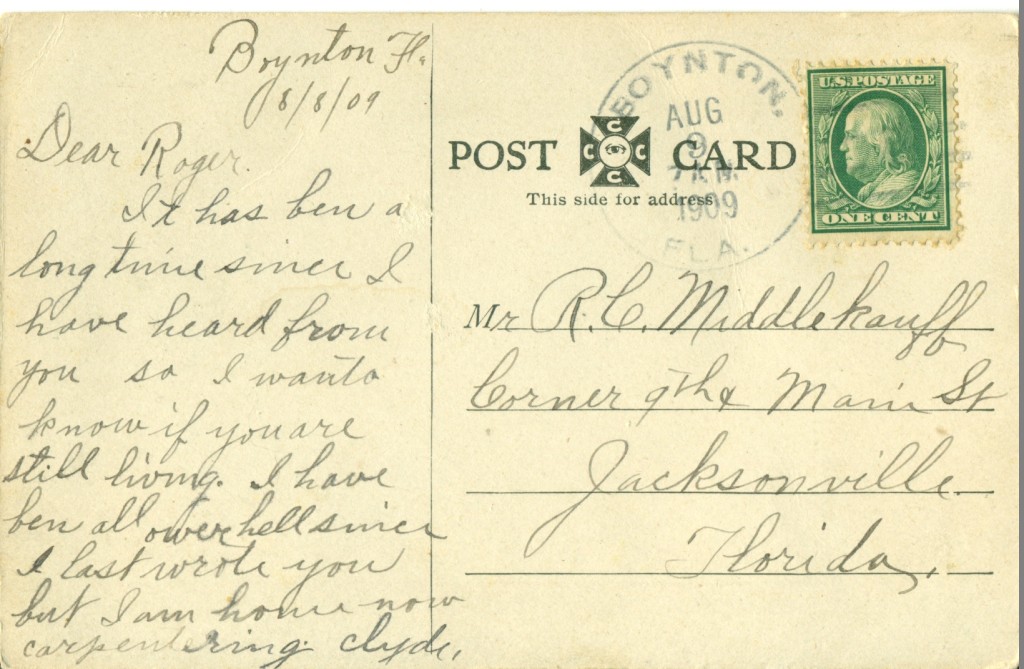 Boynton Fl.
8/8/09
Dear Roger.
It has ben a
long time since I
have heard from
you so I wanto
know if you are
still living. I have
ben all over hell since
I last wrote you
but I am home now
carpentering. Clyde.
POST CARD
C C C C
This side for address
BOYNTON,
AUG
9
7 AM
1909
FLA.
U.S. POSTAGE
ONE CENT
Mr R. C. Middlekauff
Corner 9th & Main St
Jacksonville
Florida.